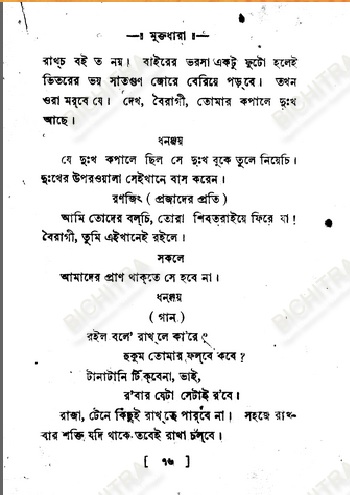 —ঃ মুক্তধারা ঃ—
রাখ্‌চ বই ত নয়। বাইরের ভরসা একটু ফুটো হলেই
ভিতরের ভয় সাতগুণ জোরে বেরিয়ে পড়্‌বে। তখন
ওরা মর্‌বে যে। দেখ, বৈরাগী, তোমার কপালে দুঃখ
আছে।
ধনঞ্জয়
যে দুঃখ কপালে ছিল সে দুঃখ বুকে তুলে নিয়েচি।
দুঃখের উপরওয়ালা সেইখানে বাস করেন।
রণজিৎ ( প্রজাদের প্রতি )
আমি তোদের বল্‌চি, তোরা শিবতরাইয়ে ফিরে যা!
বৈরাগী, তুমি এইখানেই রইলে।
সকলে
আমাদের প্রাণ থাক্‌তে সে হবে না।
ধনঞ্জয়
( গান )
রইল বলে’ রাখ্‌লে কা’রে ?
হুকুম তোমার ফল্‌বে কবে ?
টানাটানি টিঁক্‌বেনা, ভাই,
র’বার যেটা সেটাই র’বে।
রাজা, টেনে কিছুই রাখ্‌তে পার্‌বে না। সহজে রাখ-
বার শক্তি যদি থাকে তবেই রাখা চল্‌বে।
[ ৭৬ ]
BICHITRA
BICHITRA
BICHITRA
BICHITRA
BICHITRA
BICHITRA